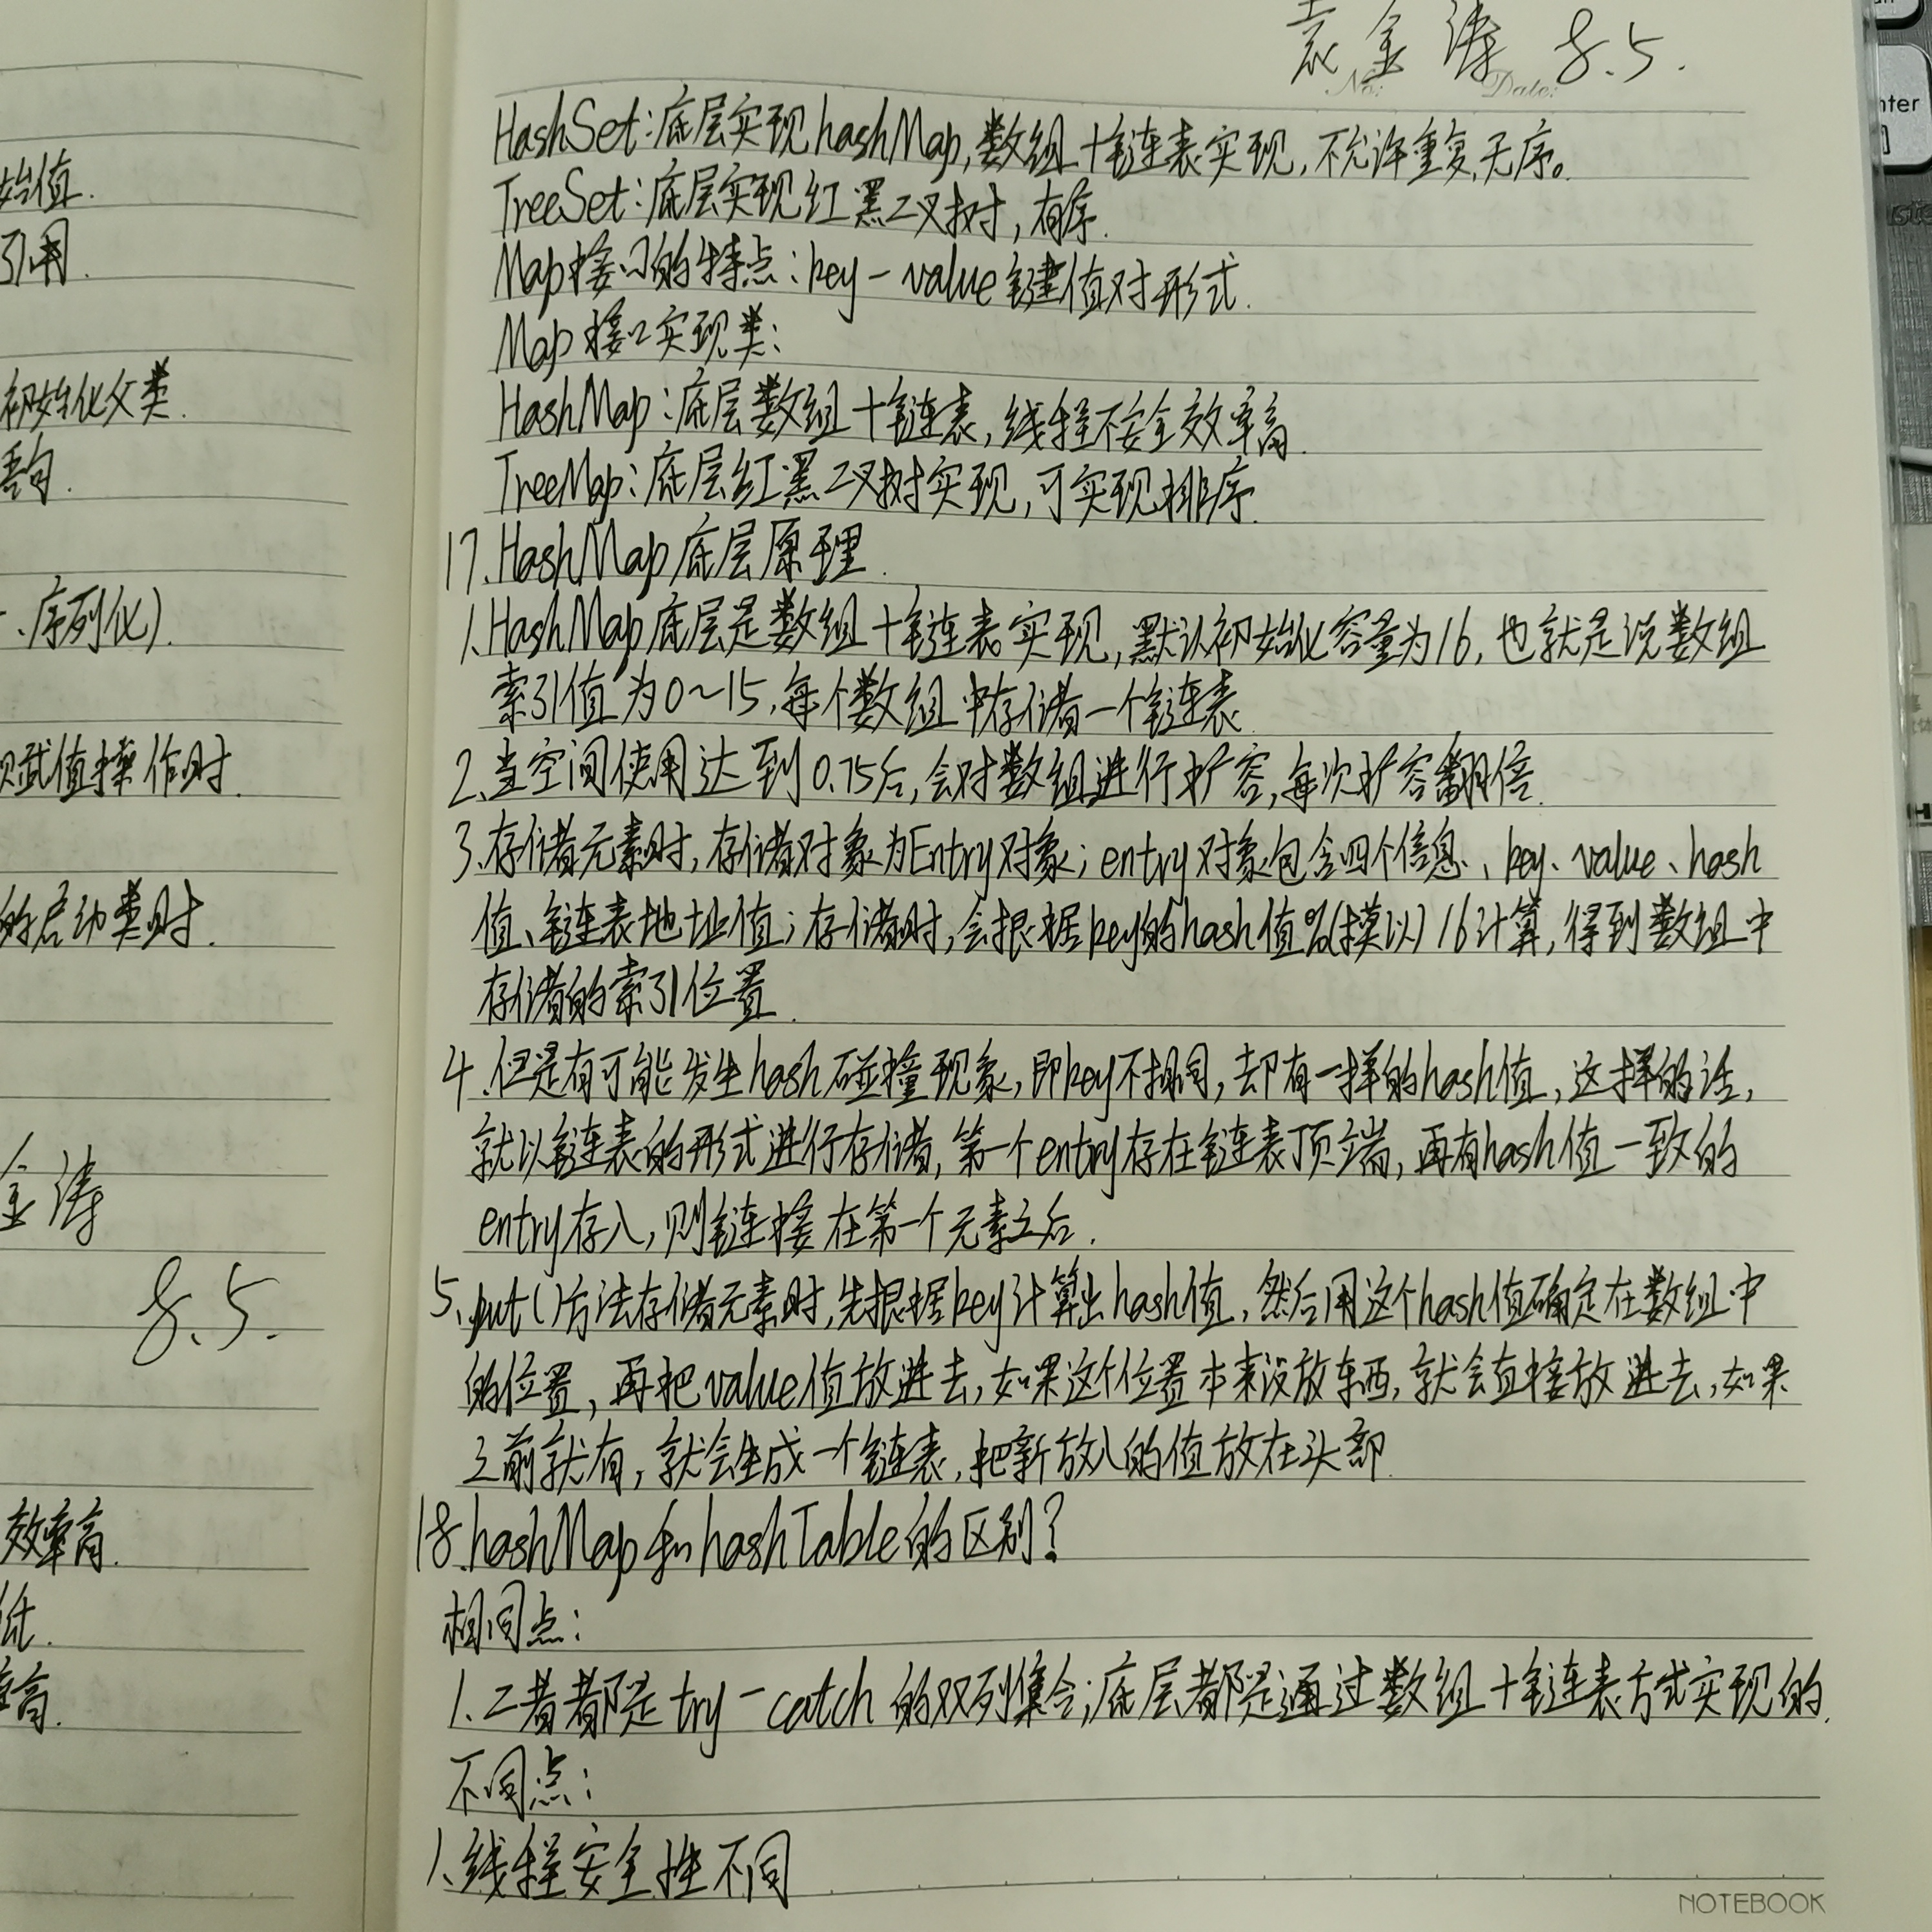 始值.
引用.
初始化父类.
语句.
、序列化).
赋值操作时.
的启动类时.
金涛
8.5.
效率高.
低.
高.
袁金涛 8.5.
No:
Date:
HashSet:底层实现hashMap,数组+链表实现,不允许重复,无序。
TreeSet:底层实现红黑二叉树,有序.
Map接口的特点:key-value键值对形式.
Map接口实现类:
HashMap:底层数组+链表,线程不安全效率高.
TreeMap:底层红黑二叉树实现,可实现排序.
17.HashMap底层原理.
1.HashMap底层是数组+链表实现,默认初始化容量为16,也就是说数组
索引值为0~15,每个数组中存储着一个链表.
2.当空间使用达到0.75后,会对数组进行扩容,每次扩容翻倍.
3.存储元素时,存储对象为Entry对象;entry对象包含四个信息、key、value、hash
值、链表地址值;存储时,会根据key的hash值%(模以)16计算,得到数组中
存储的索引位置.
4.但是有可能发生hash碰撞现象,即key不相同,却有一样的hash值,这样的话,
就以链表的形式进行存储,第一个entry存在链表顶端,再有hash值一致的
entry存入,则链接在第一个元素之后.
5.put()方法存储元素时,先根据key计算出hash值,然后用这个hash值确定在数组中
的位置,再把value值放进去,如果这个位置本来没放东西,就会直接放进去,如果
之前就有,就会生成一个链表,把新放入的值放在头部.
18.hashMap和hashTable的区别?
相同点:
1.二者都是try-catch的双列集合;底层都是通过数组+链表方式实现的.
不同点:
1.线程安全性不同
NOTEBOOK
nter